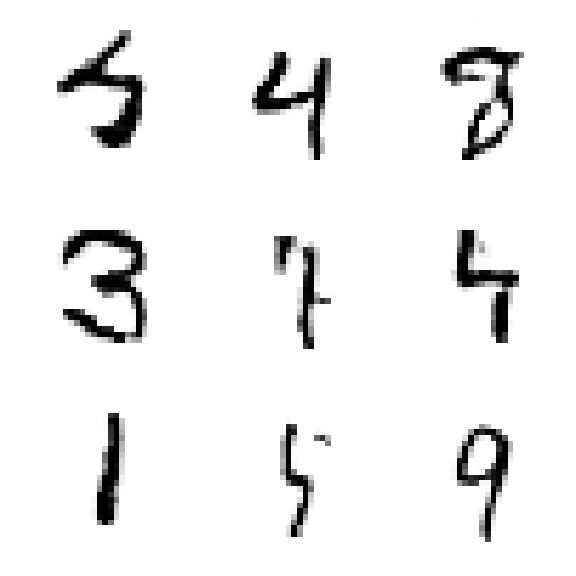 5 4 8
3 7 4
1 5 9